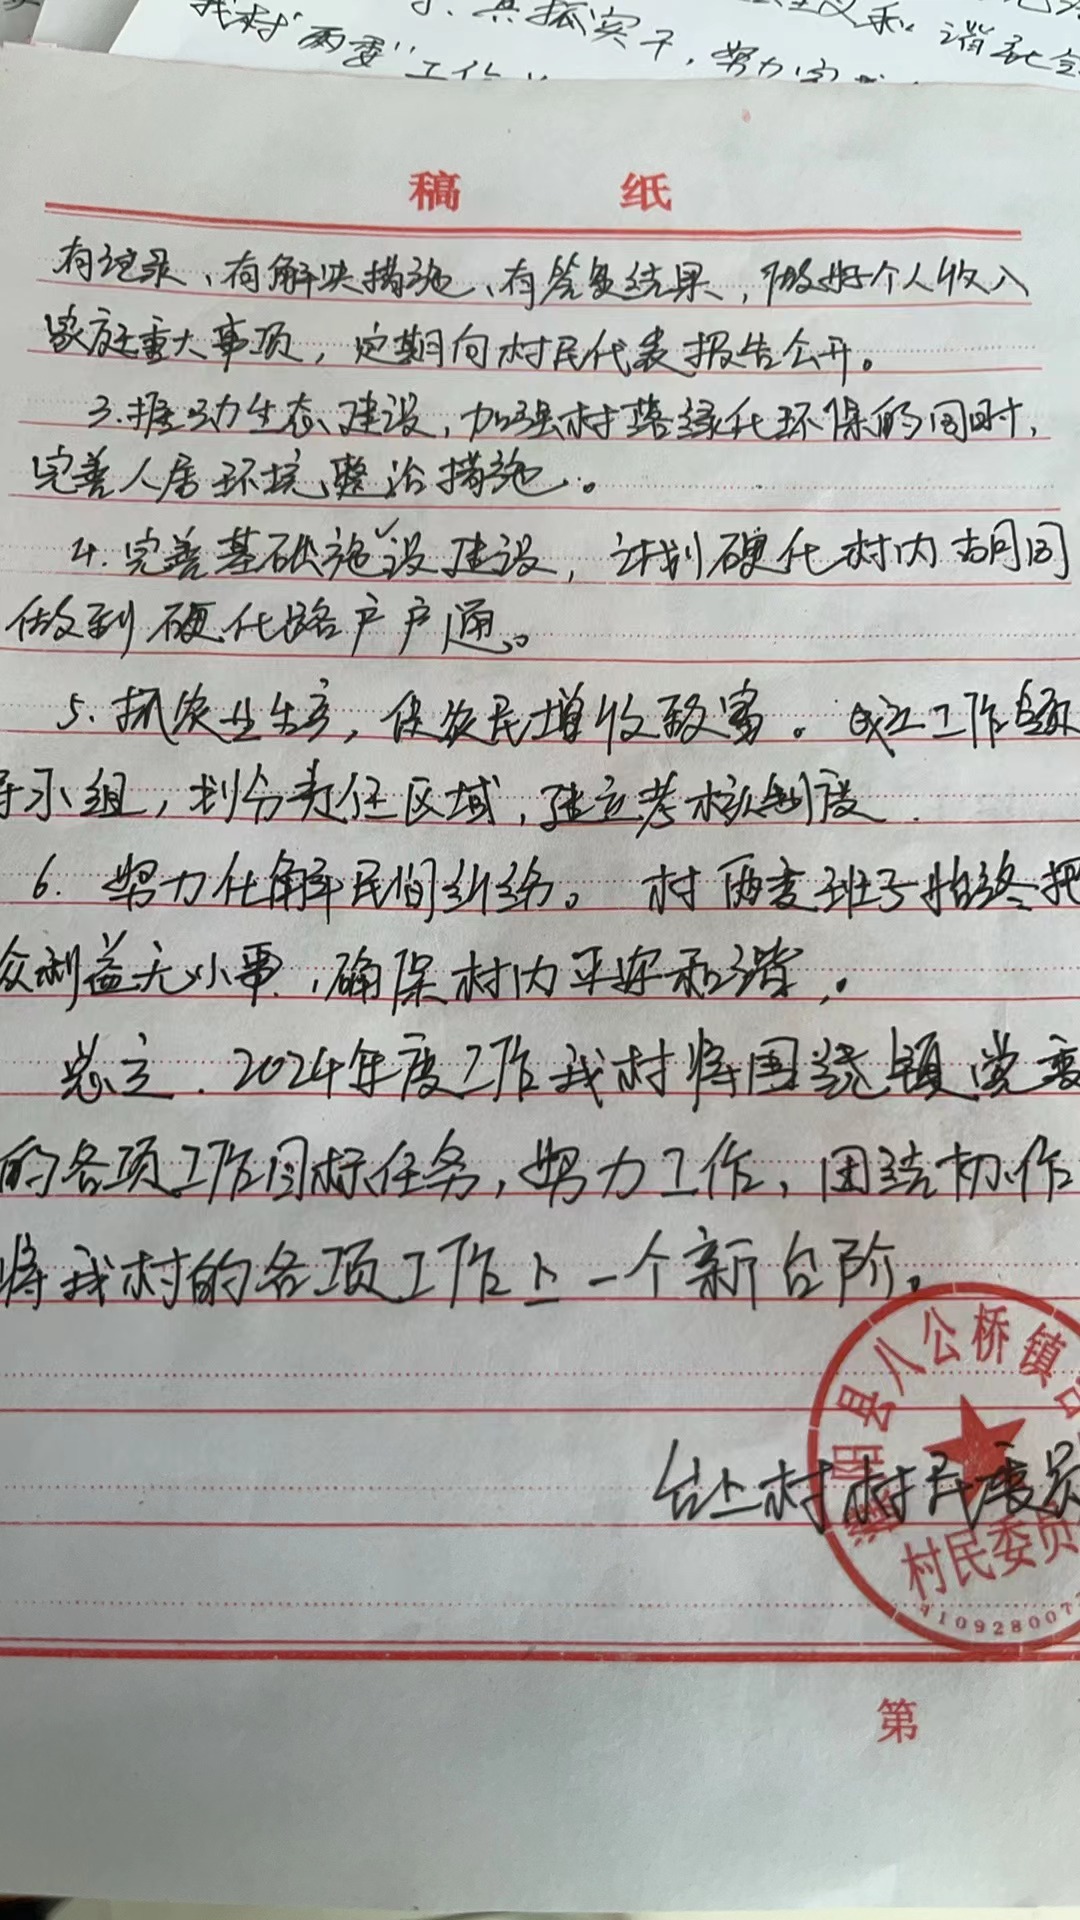 我村“两委”工作
真抓实干，努力完
稿 纸
有记录、有解决措施、有答复结果，做好个人收入
家庭重大事项，定期向村民代表报告公开。
3.推动生态建设，加强村落绿化环保的同时，
完善人居环境整治措施。
4.完善基础施设建设，计划硬化村内胡同
做到硬化路户户通。
5.抓农业生产，促农民增收致富。成立工作领
导小组，划分责任区域，建立考核制度.
6.努力化解民间纠纷。村两委班子始终把
众利益无小事，确保村内平安和谐。
总之.2024年度工作我村将围绕镇党委
的各项工作目标任务，努力工作，团结协作
将我村的各项工作上一个新台阶。
阳县八公桥镇
台上村村民委员
村民委员
41092800
第